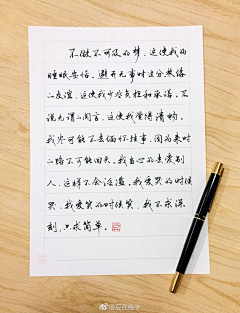 不做不可及的梦，这使我的
睡眠安恬。避开无事时过分热络
的友谊，这使我少些负担和承诺。不
说无谓的闲言，这使我觉得清畅。
我尽可能不去缅怀往事，因为来时
的路不可能回头。我当心的去爱别
人，这样不会泛滥。我爱哭的时候
哭，我爱笑的时候笑，我不求深
刻，只求简单。